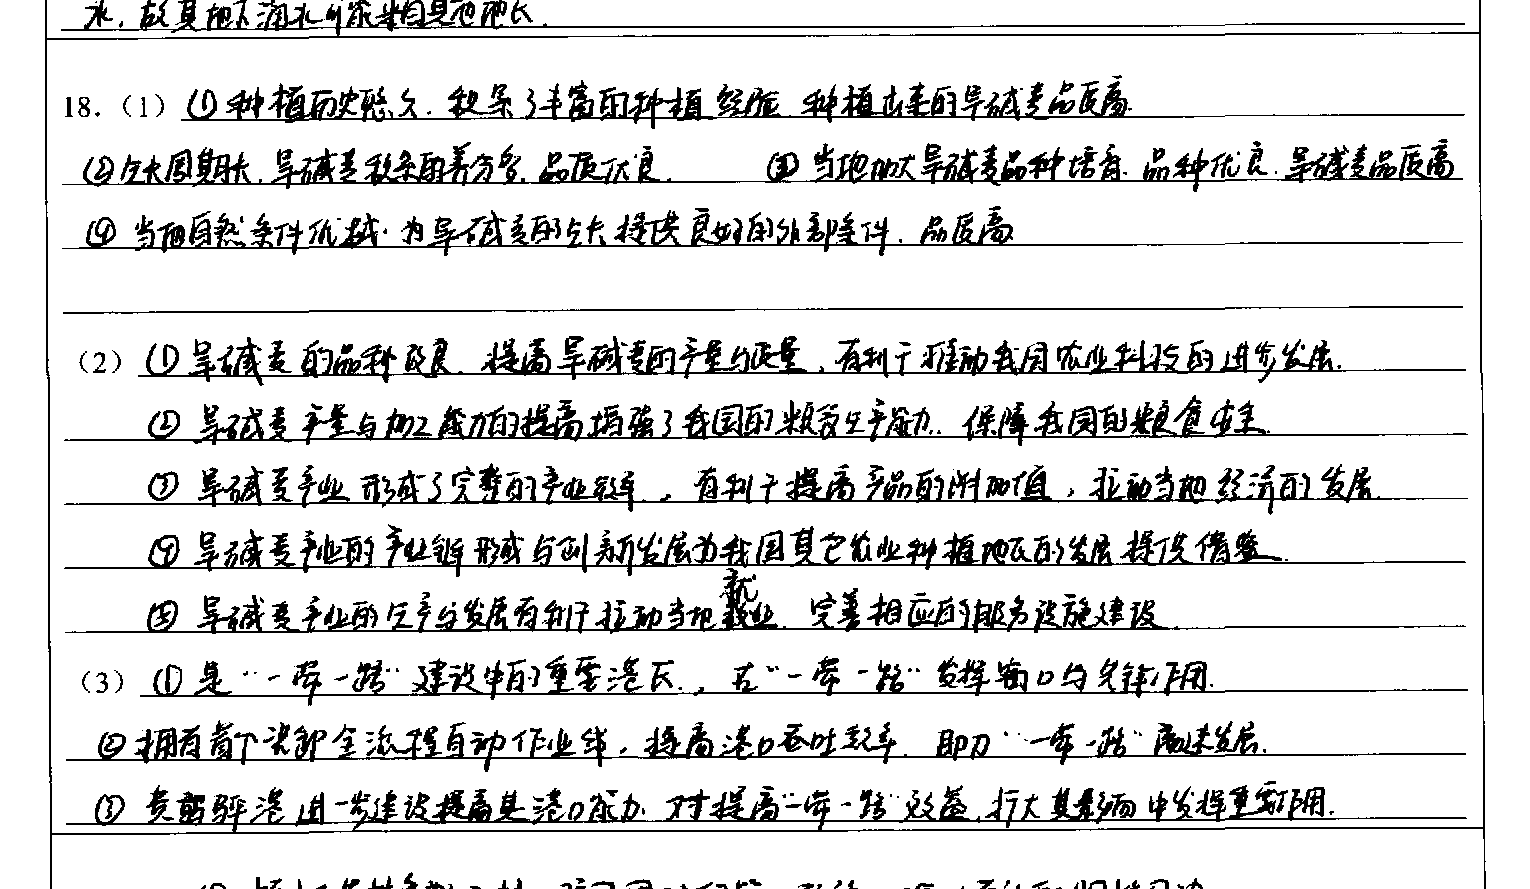 水，故其地下潜水可能来自其他地区.
18.（1）①种植历史悠久，积累了丰富的种植经验，种植出来的旱碱麦品质高.
②生长周期长，旱碱麦积累的养分多，品质优良. ③当地加大旱碱麦品种培育，品种优良，旱碱麦品质高
④当地自然条件优越，为旱碱麦的生长提供良好的外部条件，品质高
（2）①旱碱麦的品种改良，提高旱碱麦的产量与质量，有利于推动我国农业科技的进步发展.
②旱碱麦产量与加工能力的提高增强了我国的粮食生产能力，保障我国的粮食安全.
③旱碱麦产业形成了完整的产业链，有利于提高产品的附加值，拉动当地经济的发展.
④旱碱麦产业的产业链形成与创新发展为我国其它农业种植地区的发展提供借鉴.
⑤旱碱麦产业的生产与发展有利于拉动当地就业，完善相应的服务设施建设
（3）①是“一带一路”建设中的重要港区，在“一带一路”发挥窗口与先锋作用.
②拥有首个装卸全流程自动作业线，提高港口吞吐效率，助力“一带一路”高速发展.
③黄骅港进一步建设提高其港口能力，对提高“一带一路”效益，扩大其影响中发挥重要作用.